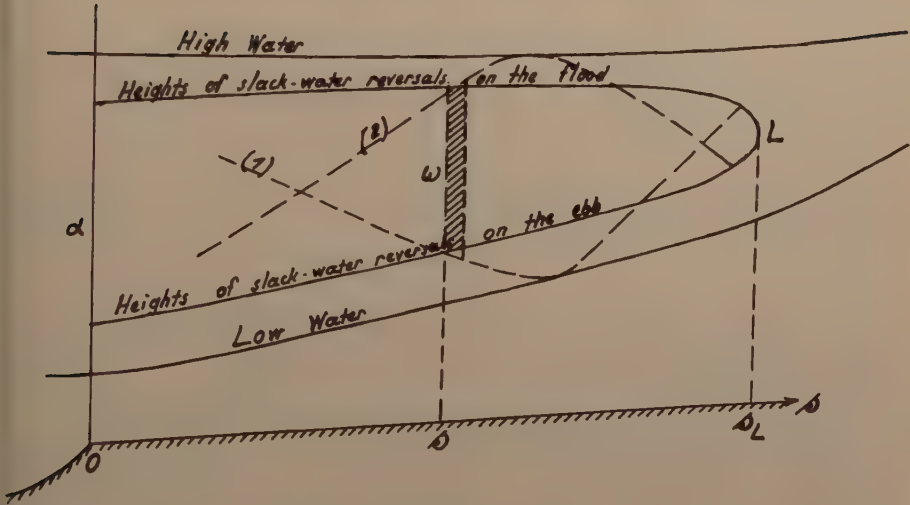 High Water
Heights of slack-water reversals on the flood
(2)
(1)
L
ω
α
Heights of slack-water reversals on the ebb
Low Water
0
s
s_L
s